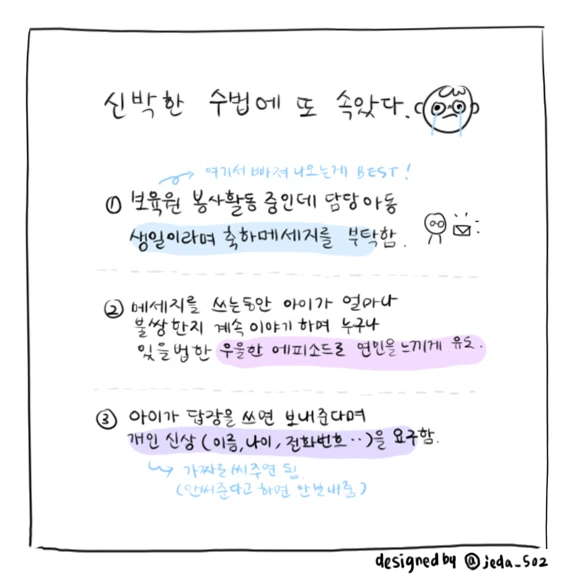 신박한 수법에 또 속았다.
여기서 빠져나오는게 BEST!
① 보육원 봉사활동 중인데 담당아동
생일이라며 축하메세지를 부탁함.
② 메세지를 쓰는동안 아이가 얼마나
불쌍한지 계속 이야기하며 누구나
있을법한 우울한 에피소드로 연민을 느끼게 유도.
③ 아이가 답장을 쓰면 보내준다며
개인 신상 (이름, 나이, 전화번호..)을 요구함.
가짜로 써주면 됨.
(안써준다고 하면 안보내줌)
designed by @jeda_502